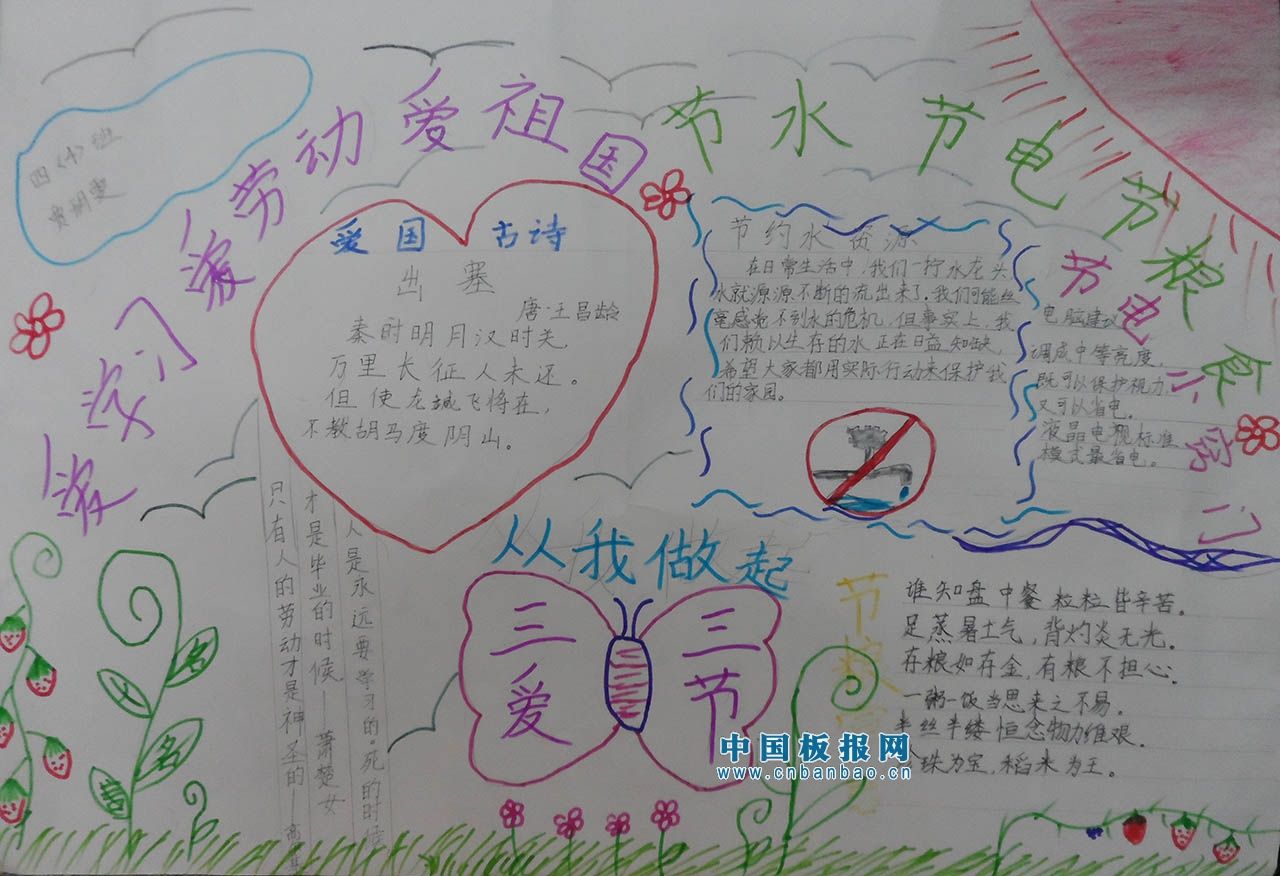 四〈十〉班
爱学习爱劳动爱祖国
节水节电节粮食
爱国 古诗
出塞
唐·王昌龄
秦时明月汉时关
万里长征人未还。
但使龙城飞将在,
不教胡马度阴山。
节约水资源
在日常生活中,我们一拧水龙头
水就源源不断的流出来了.我们可能丝
毫感觉不到水的危机,但事实上,我
们赖以生存的水正在日益短缺,
希望大家都用实际行动来保护我
们的家园。
节电小窍门
电脑建议
调成中等亮度,
既可以保护视力,
又可以省电。
液晶电视标准
模式最省电。
人是永远要学习的。死的时候
才是毕业的时候——萧楚女
只有人的劳动才是神圣的—高
从我做起
三爱
三节
谁知盘中餐 粒粒皆辛苦。
足蒸暑土气,背灼炎无光。
存粮如存金,有粮不担心.
一粥一饭当思来之不易.
半丝半缕恒念物力维艰.
珠为宝,稻米为王。
中国板报网
www.cnbanbao.cn